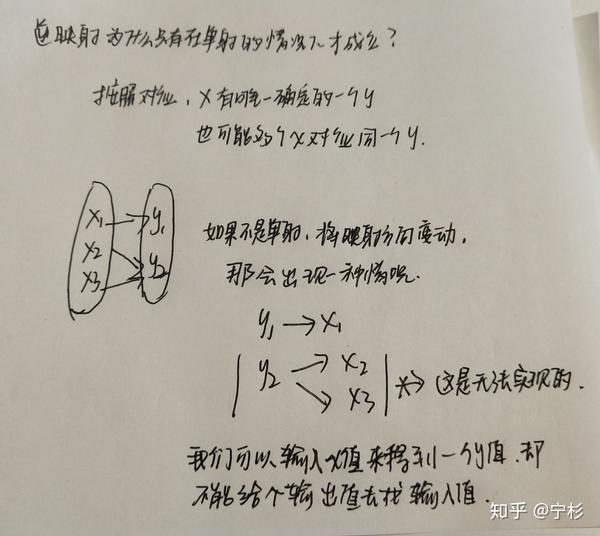 逆映射为什么只有在单射的情况下才成立?
按照对应,x有唯一确定的一个y
也可能多个x对应同一个y.
x₁ y₁
x₂ y₂
x₃
如果不是单射,将映射方向变动,
那会出现一种情况.
y₁→x₁
y₂→x₂
→x₃ 这是无法实现的.
我们可以输入x值来得到一个y值,却
不能给个输出值去找输入值.
知乎 @宁杉